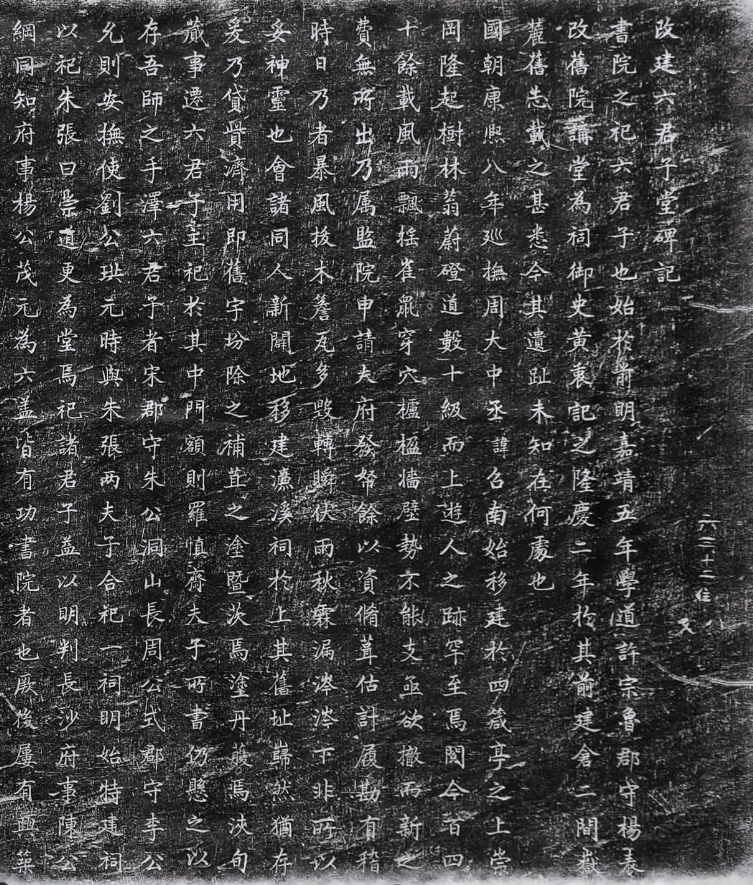 改建六君子堂碑記
書院之祀六君子也始於前明嘉靖五年學道許宗魯郡守楊表
改舊院講堂為祠御史黃衷記之隆慶二年於其前建倉二間嶽
麓舊志載之甚悉今其遺趾未知在何處也
國朝康熙八年廵撫周大中丞諱召南始移建於四箴亭之上崇
岡隆起樹林蓊蔚磴道數十級而上遊人之跡罕至焉閱今百四
十餘載風雨飄搖雀鼠穿穴櫨楹牆壁勢不能支亟欲撤而新之
費無所出乃属監院申請大府發帑餘以資脩葺估計履勘有稽
時日乃者暴風拔木簷瓦多毀轉瞬伏雨秋霖漏滲滲下非所以
妥神靈也會諸同人新闢地移建濂溪祠於上其舊址巋然猶存
爰乃貸貲濟用即舊宇坋除之補苴之塗暨茨焉塗丹雘焉浹旬
蕆事遷六君子主祀於其中門額則羅慎齋夫子所書仍懸之以
存吾師之手澤六君子者宋郡守朱公洞山長周公式郡守李公
允則安撫使劉公珙元時與朱張两夫子合祀一祠明始特建祠
以祀朱張曰崇道更為堂焉祀諸君子益以明判長沙府事陳公
綱同知府事楊公茂元為六蓋皆有功書院者也厥後屢有興築